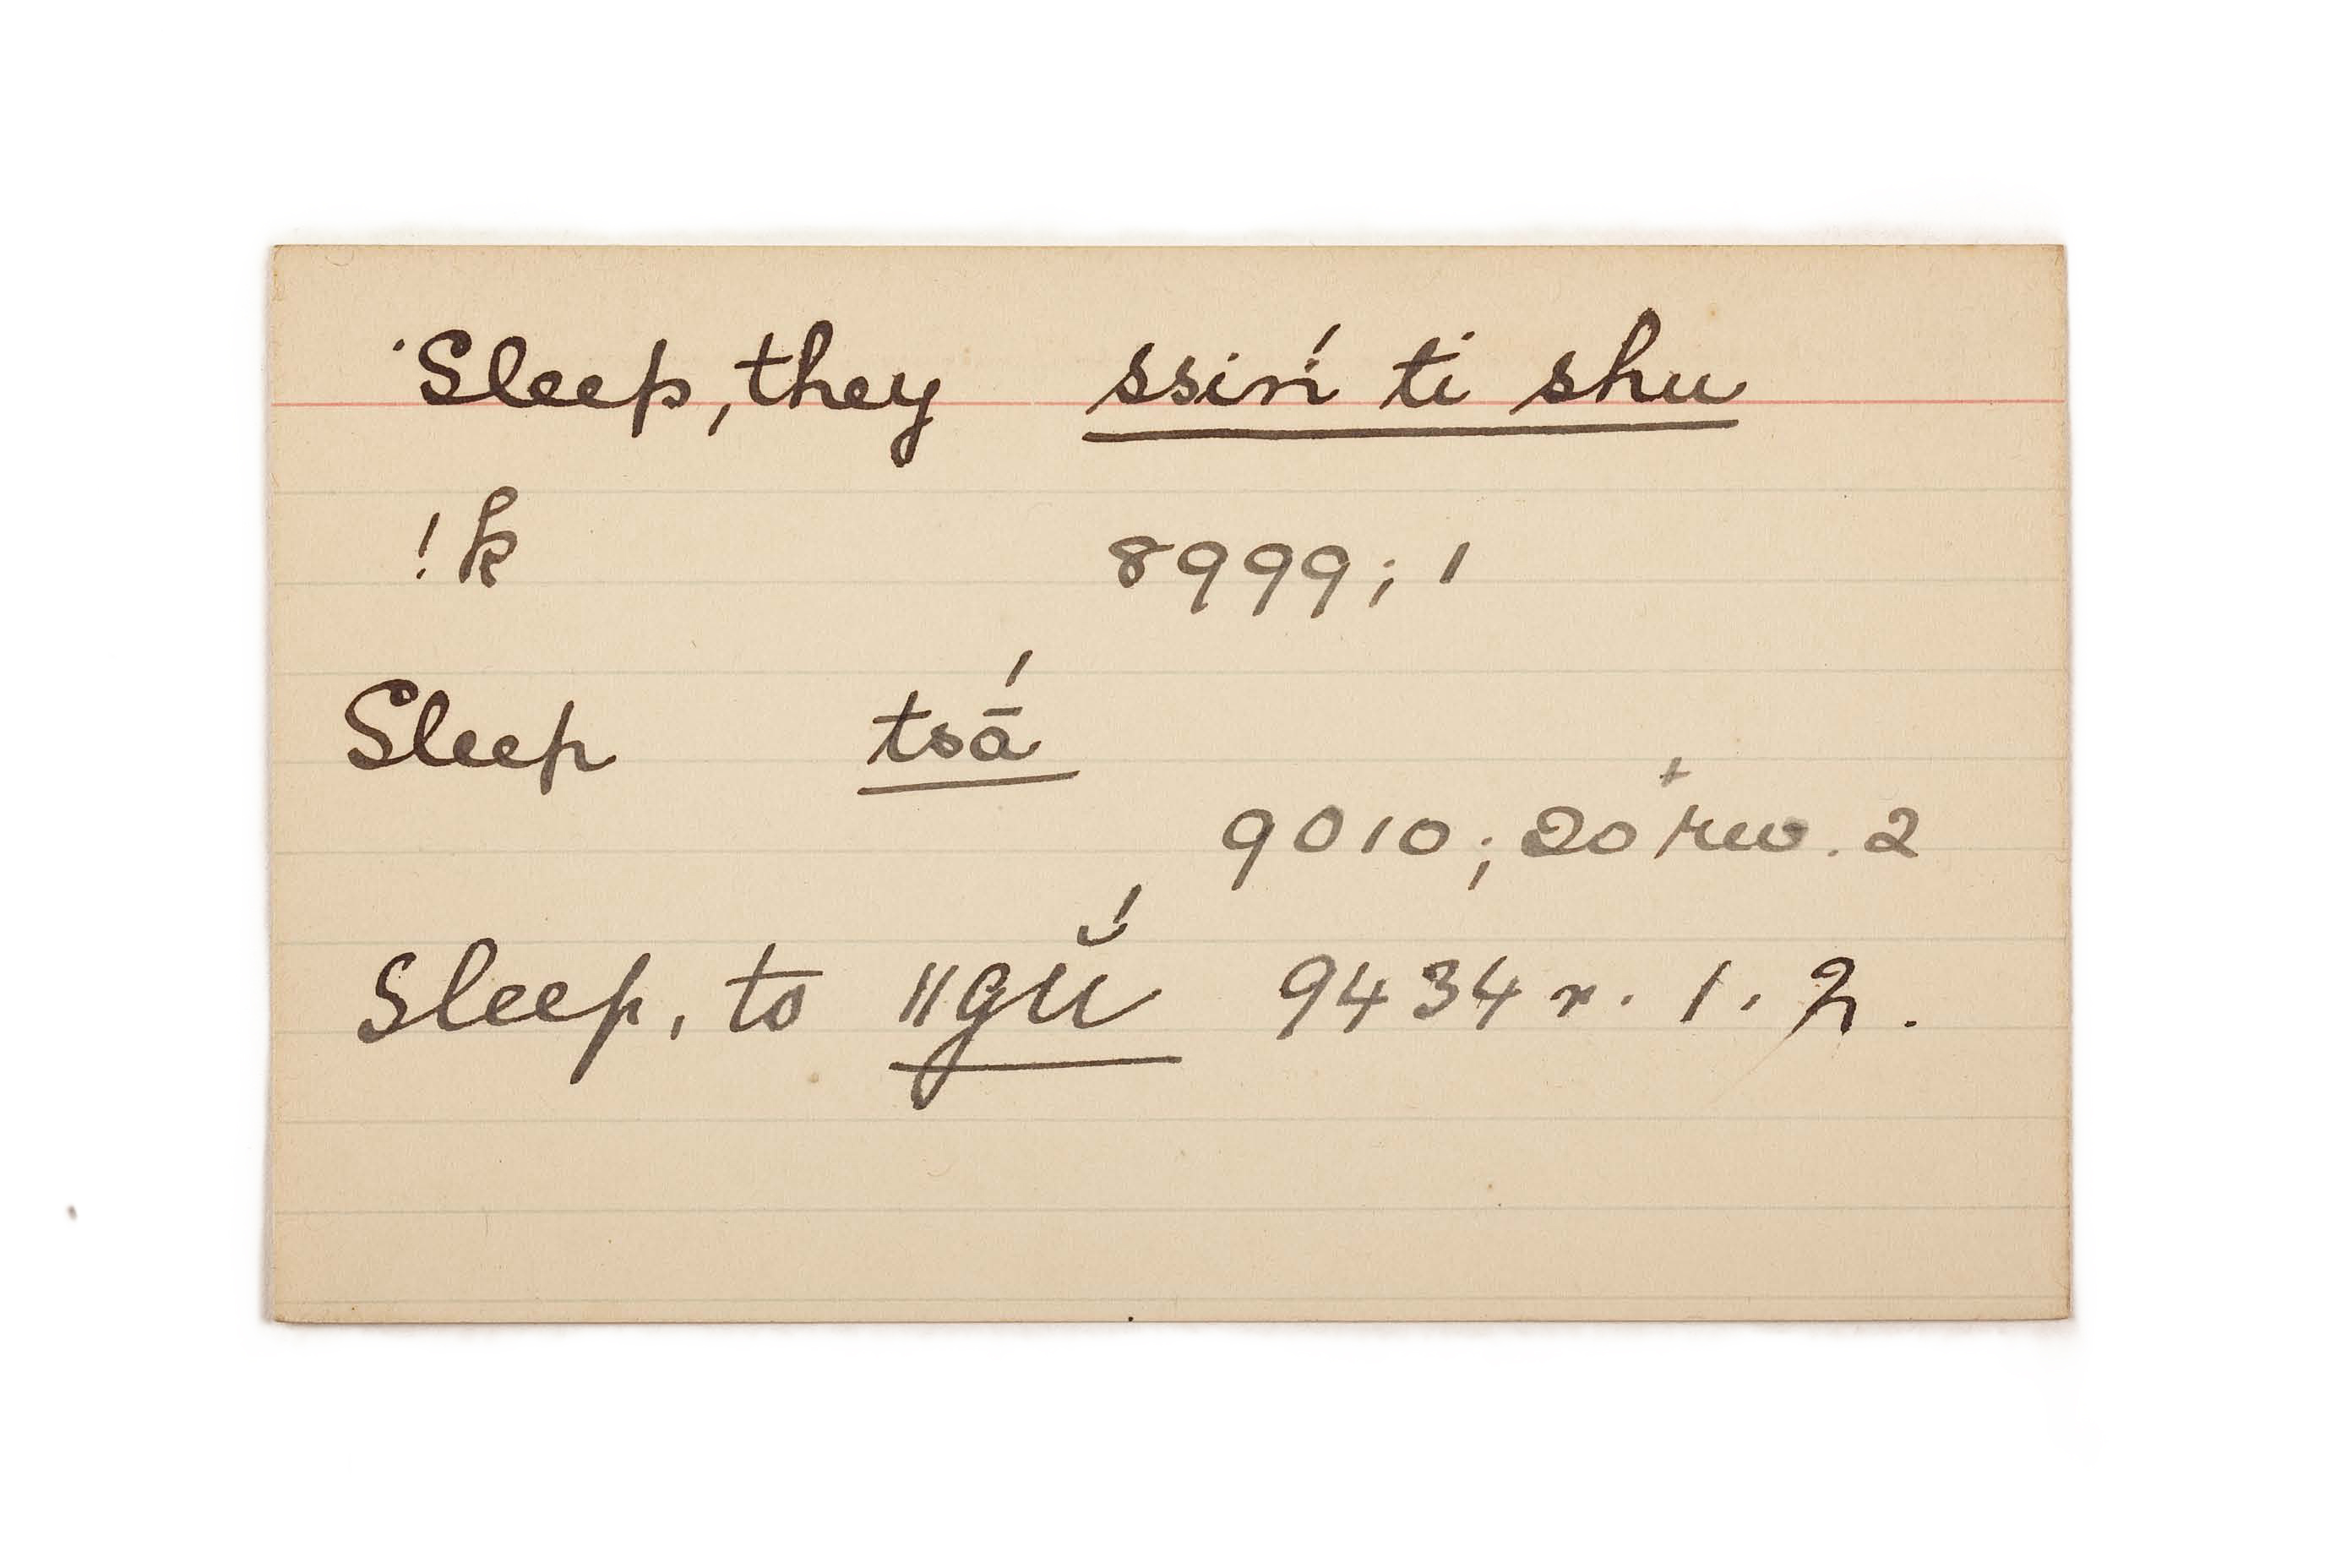 Sleep, they ssiń ti shu
!k 8999; 1
Sleep tsā́
9010; 20 rev. 2
Sleep, to ǁgŭ́ 9434 r. 1.